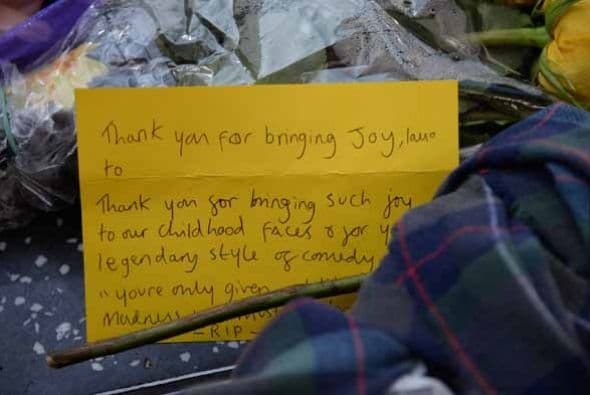 Thank you for bringing Joy,
to
Thank you for bringing such joy
to our childhood faces & for
legendary style of comedy
"youre only given
Madness
- RIP -